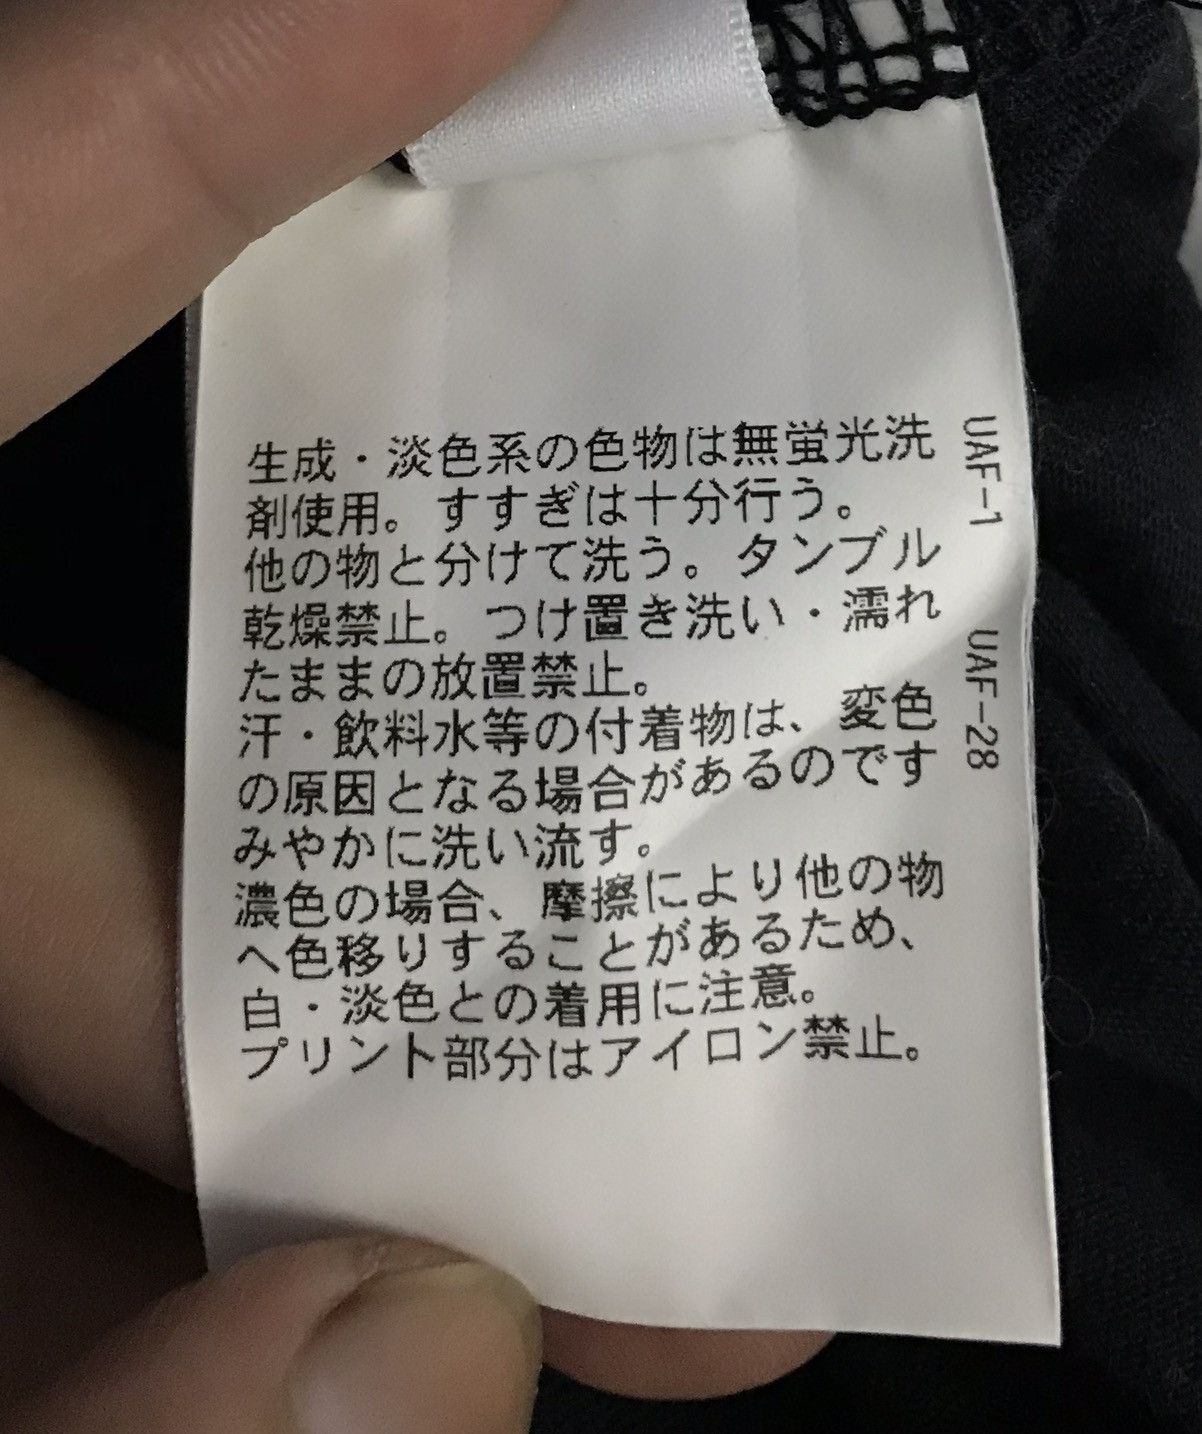 生成・淡色系の色物は無蛍光洗
剤使用。すすぎは十分行う。
他の物と分けて洗う。タンブル
乾燥禁止。つけ置き洗い・濡れ
たままの放置禁止。
汗・飲料水等の付着物は、変色
の原因となる場合があるのです
みやかに洗い流す。
濃色の場合、摩擦により他の物
へ色移りすることがあるため、
白・淡色との着用に注意。
プリント部分はアイロン禁止。
UAF-1
UAF-28